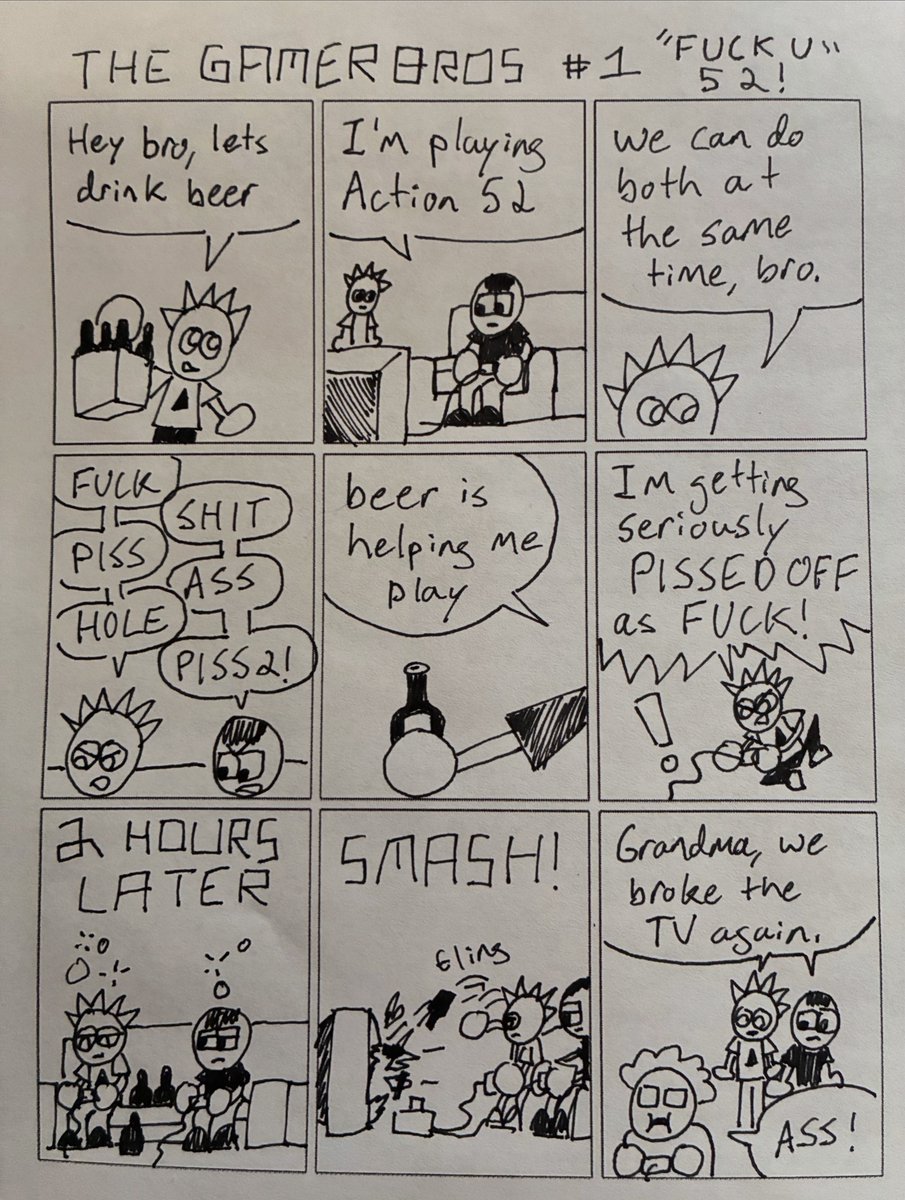 THE GAMER BROS #1 "FUCK U"
52!
Hey bro, lets
drink beer
I'm playing
Action 52
we can do
both at
the same
time, bro.
FUCK
PISS
HOLE
SHIT
ASS
PISS2!
beer is
helping me
play
Im getting
seriously
PISSED OFF
as FUCK!
!
2 HOURS
LATER
SMASH!
fling
Grandma, we
broke the
TV again.
ASS!